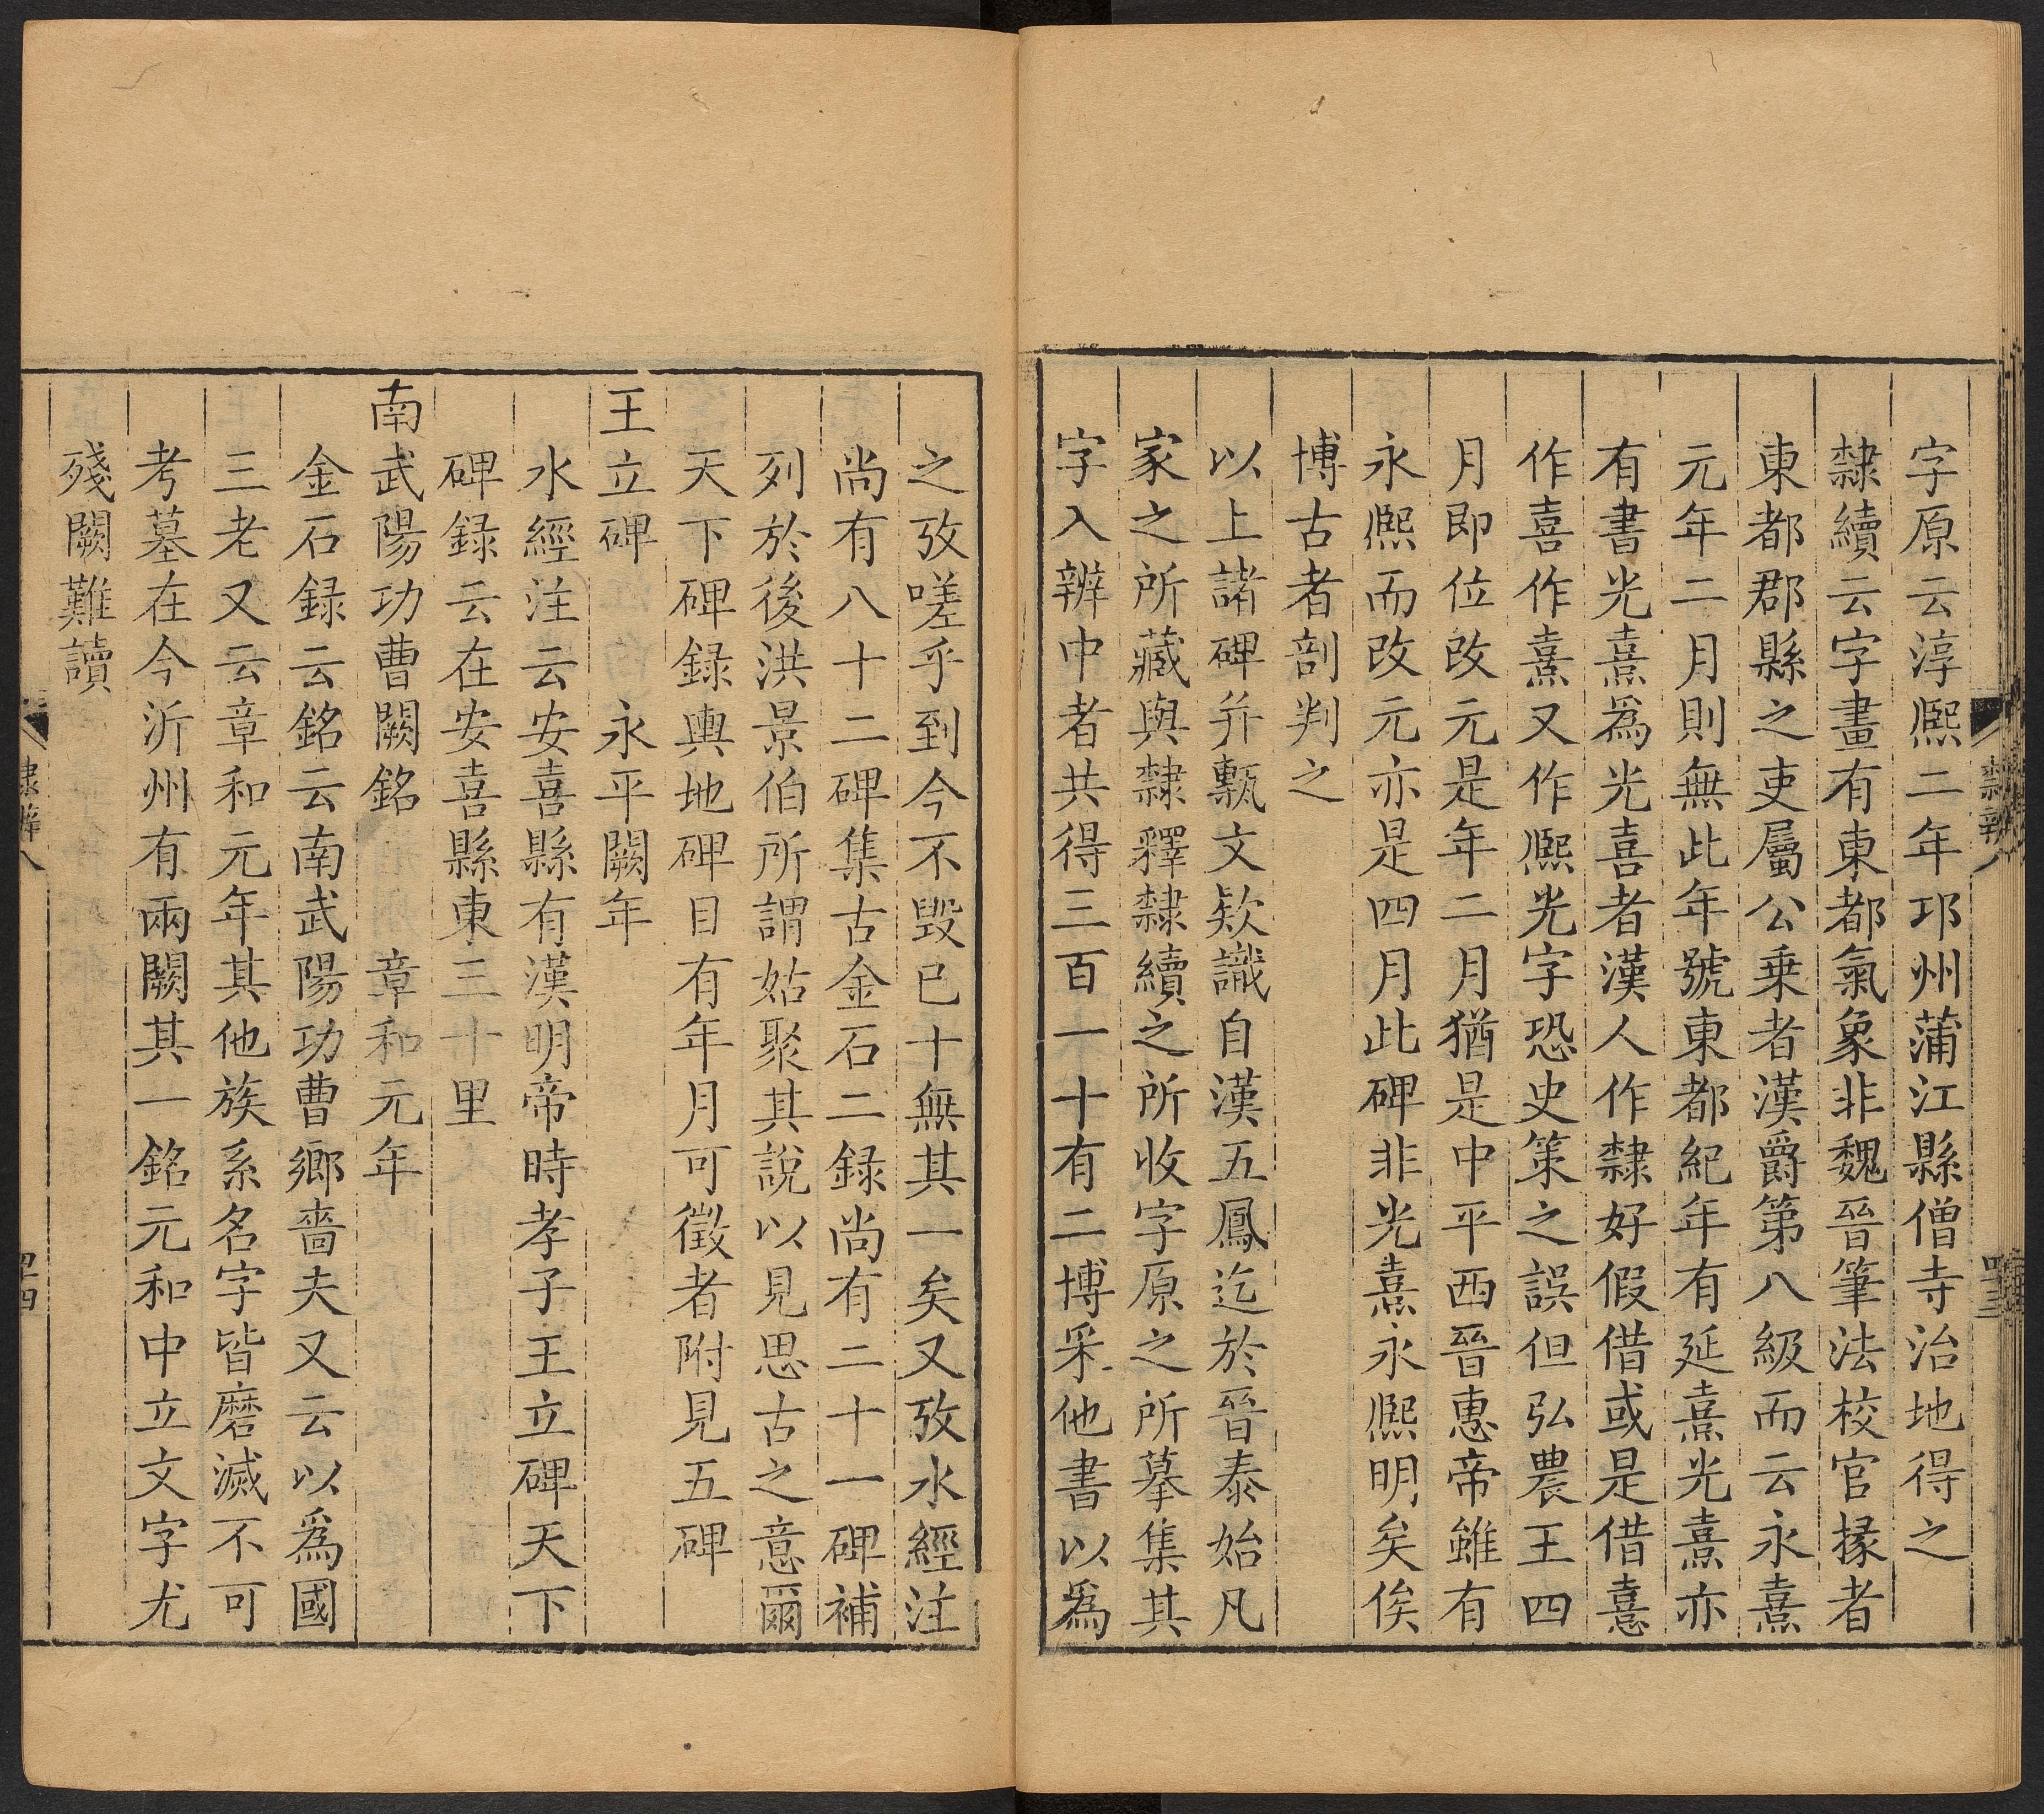 字原云淳熈二年邛州蒲江縣僧寺治地得之
隸續云字畫有東都氣象非魏晉筆法校官掾者
東都郡縣之吏屬公乗者漢爵第八級而云永熹
元年二月則無此年號東都紀年有延熹光熹亦
有書光熹爲光喜者漢人作隸好假借或是借憙
作喜作熹又作熈光字恐史策之誤但弘農王四
月即位改元是年二月猶是中平西晉惠帝雖有
永熈而改元亦是四月此碑非光熹永熈明矣俟
博古者剖判之
以上諸碑并甎文欵識自漢五鳳迄於晉泰始凡
家之所藏與隸釋隸續之所收字原之所摹集其
字入辨中者共得三百一十有二博采他書以爲
隸辨八
四十三
之攷嗟乎到今不毀已十無其一矣又攷水經注
尚有八十二碑集古金石二録尚有二十一碑補
列於後洪景伯所謂姑聚其說以見思古之意爾
天下碑録輿地碑目有年月可徵者附見五碑
王立碑 永平闕年
水經注云安喜縣有漢明帝時孝子王立碑天下
碑録云在安喜縣東三十里
南武陽功曹闕銘 章和元年
金石録云銘云南武陽功曹鄉嗇夫又云以爲國
三老又云章和元年其他族系名字皆磨滅不可
考墓在今沂州有兩闕其一銘元和中立文字尤
殘闕難讀
隸辨八
四十四